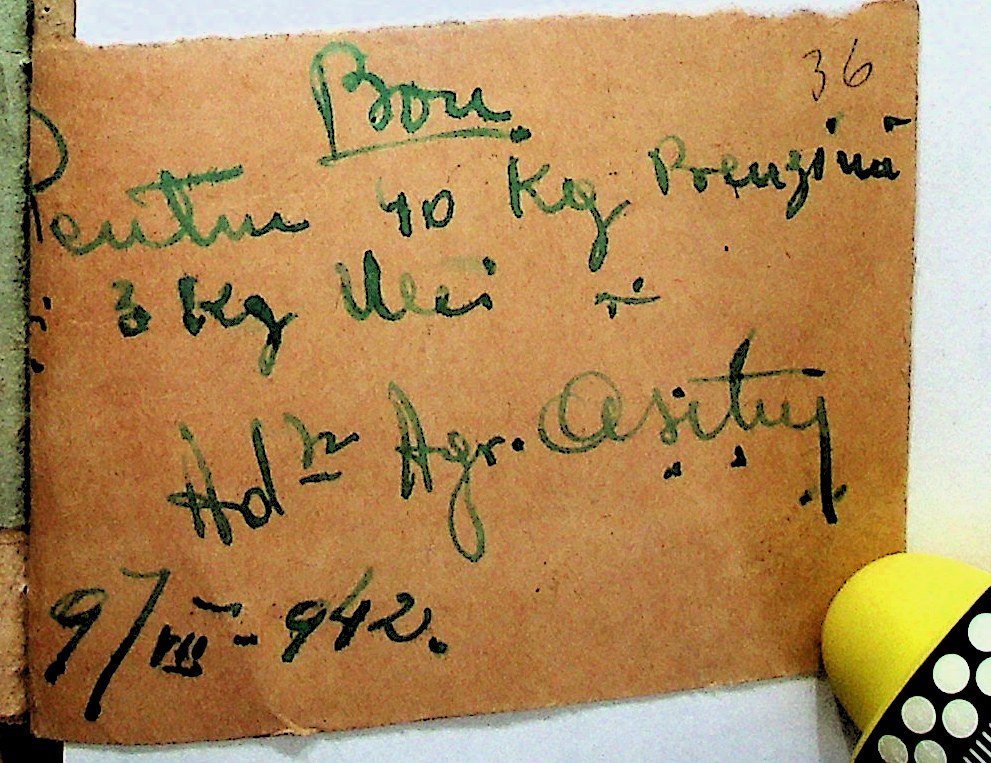 36
Bon
Pentru 40 Kg Benzină
și 3 Kg Ulei
Adr Agr.
9/VII-942.